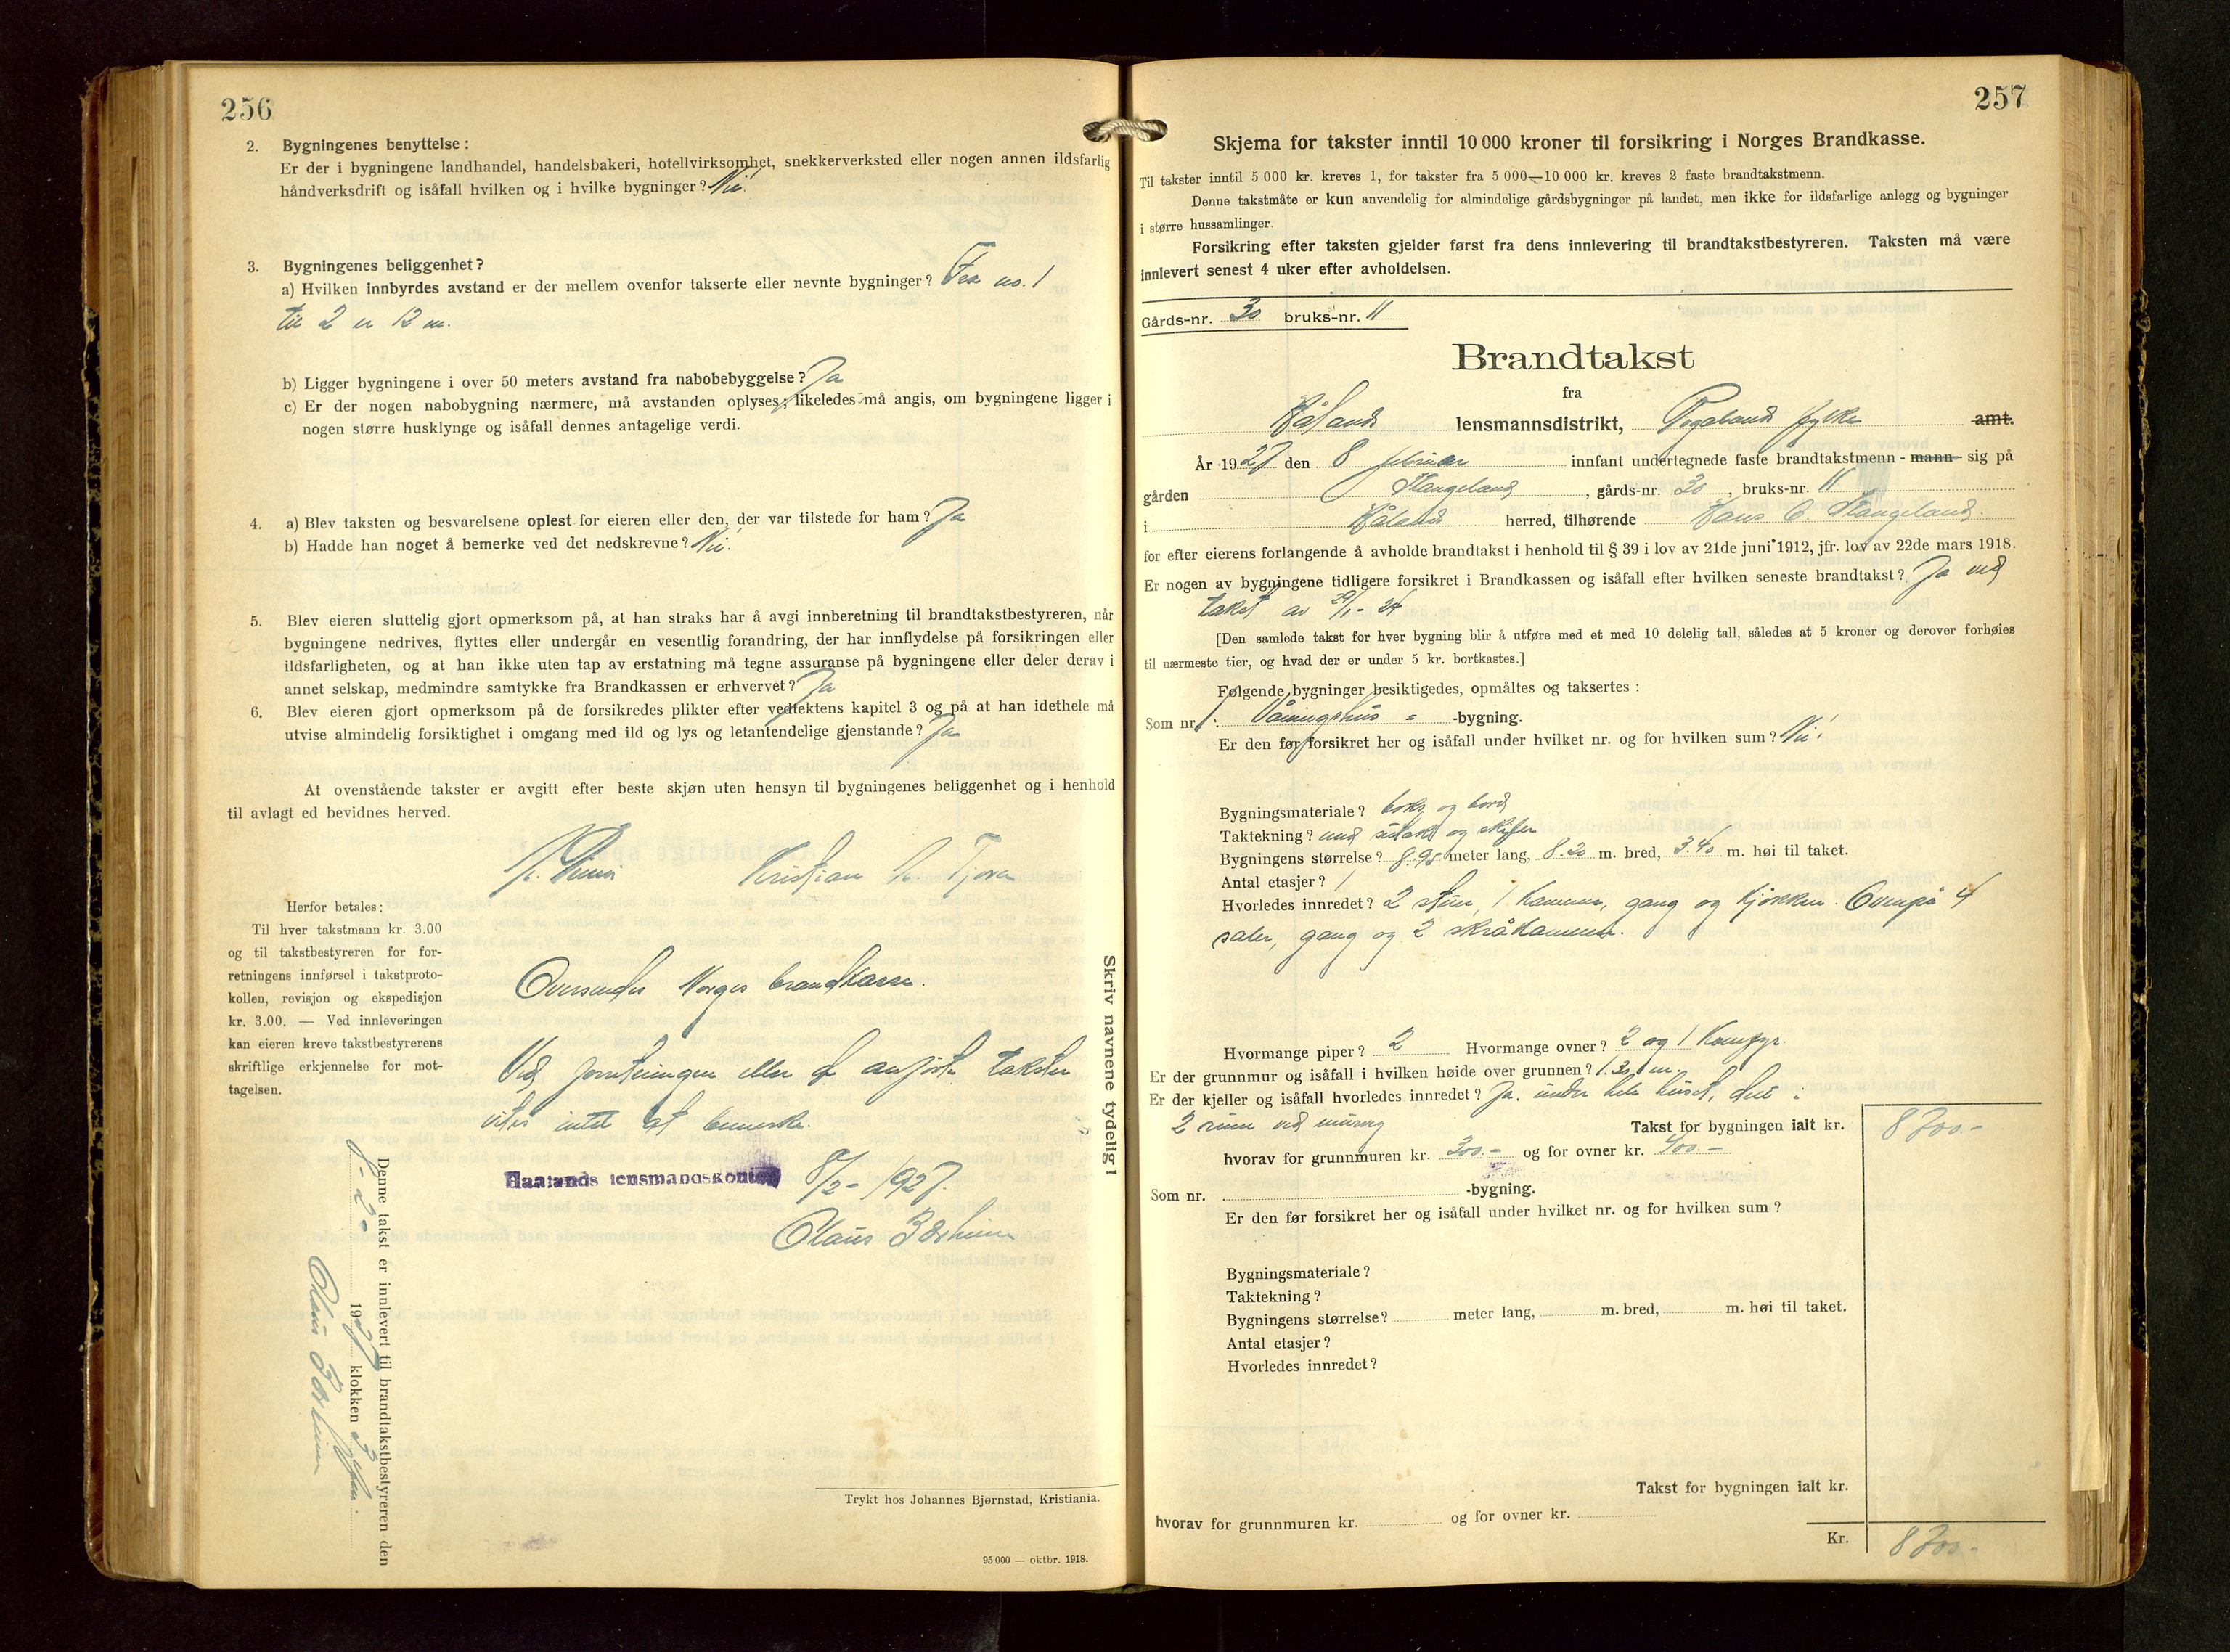 256
2. Bygningenes benyttelse:
Er der i bygningene landhandel, handelsbakeri, hotellvirksomhet, snekkerverksted eller nogen annen ildsfarlig
håndverksdrift og isåfall hvilken og i hvilke bygninger? Nei.
3. Bygningenes beliggenhet?
a) Hvilken innbyrdes avstand er der mellem ovenfor takserte eller nevnte bygninger? Fra no. 1
til 2 er 12 m.
b) Ligger bygningene i over 50 meters avstand fra nabobebyggelse? Ja
c) Er der nogen nabobygning nærmere, må avstanden oplyses; likeledes må angis, om bygningene ligger i
nogen større husklynge og isåfall dennes antagelige verdi.
4. a) Blev taksten og besvarelsene oplest for eieren eller den, der var tilstede for ham? Ja
b) Hadde han noget å bemerke ved det nedskrevne? Nei.
5. Blev eieren sluttelig gjort opmerksom på, at han straks har å avgi innberetning til brandtakstbestyreren, når
bygningene nedrives, flyttes eller undergår en vesentlig forandring, der har innflydelse på forsikringen eller
ildsfarligheten, og at han ikke uten tap av erstatning må tegne assuranse på bygningene eller deler derav i
annet selskap, medmindre samtykke fra Brandkassen er erhvervet? Ja
6. Blev eieren gjort opmerksom på de forsikredes plikter efter vedtektens kapitel 3 og på at han idethele må
utvise almindelig forsiktighet i omgang med ild og lys og letantendelige gjenstande? Ja
At ovenstående takster er avgitt efter beste skjøn uten hensyn til bygningenes beliggenhet og i henhold
til avlagt ed bevidnes herved.
Kristian Tjora
Herfor betales:
Til hver takstmann kr. 3.00
og til takstbestyreren for for-
retningens innførsel i takstproto-
kollen, revisjon og ekspedisjon
kr. 3.00. — Ved innleveringen
kan eieren kreve takstbestyrerens
skriftlige erkjennelse for mot-
tagelsen.
Oversendes Norges brandkasse.
Ved forretningen eller de anførte takster
vites intet at bemerke.
Haalands lensmandskontor 8/2- 1927.
Olaus Børheim
Skriv navnene tydelig!
Denne takst er innlevert til brandtakstbestyreren den
8-2- 1927 klokken 3
Olaus Børheim
Trykt hos Johannes Bjørnstad, Kristiania.
95 000 — oktbr. 1918.
257
Skjema for takster inntil 10 000 kroner til forsikring i Norges Brandkasse.
Til takster inntil 5 000 kr. kreves 1, for takster fra 5 000—10 000 kr. kreves 2 faste brandtakstmenn.
Denne takstmåte er kun anvendelig for almindelige gårdsbygninger på landet, men ikke for ildsfarlige anlegg og bygninger
i større hussamlinger.
Forsikring efter taksten gjelder først fra dens innlevering til brandtakstbestyreren. Taksten må være
innlevert senest 4 uker efter avholdelsen.
Gårds-nr. 30 bruks-nr. 11
Brandtakst
fra
Håland lensmannsdistrikt, Rogaland fylke amt.
År 1927 den 8 februar innfant undertegnede faste brandtakstmenn - mann - sig på
gården Stangeland, gårds-nr. 30, bruks-nr. 11
i Håland herred, tilhørende Hans C. Stangeland.
for efter eierens forlangende å avholde brandtakst i henhold til § 39 i lov av 21de juni 1912, jfr. lov av 22de mars 1918.
Er nogen av bygningene tidligere forsikret i Brandkassen og isåfall efter hvilken seneste brandtakst? Ja ved
takst av 29/1- 24
[Den samlede takst for hver bygning blir å utføre med et med 10 delelig tall, således at 5 kroner og derover forhøies
til nærmeste tier, og hvad der er under 5 kr. bortkastes.]
Følgende bygninger besiktigedes, opmåltes og taksertes:
Som nr. 1. Våningshus - -bygning.
Er den før forsikret her og isåfall under hvilket nr. og for hvilken sum? Nei.
Bygningsmateriale? og bord
Taktekning? med sutak og skifer
Bygningens størrelse? 8.95 meter lang, 8.20 m. bred, 3.40 m. høi til taket.
Antal etasjer? 1
Hvorledes innredet? 2 stuer, 1 kammer, gang og kjøkken. Ovenpå 4
saler, gang og 2 skråkammer.
Hvormange piper? 2 Hvormange ovner? 2 og 1 Komfyr.
Er der grunnmur og isåfall i hvilken høide over grunnen? 1.30 m.
Er der kjeller og isåfall hvorledes innredet? Ja. under hele huset, delt i
2 rum ved murveg
Takst for bygningen ialt kr. 8700.-
hvorav for grunnmuren kr. 300.- og for ovner kr. 400.-
Som nr. -bygning.
Er den før forsikret her og isåfall under hvilket nr. og for hvilken sum?
Bygningsmateriale?
Taktekning?
Bygningens størrelse? meter lang, m. bred, m. høi til taket.
Antal etasjer?
Hvorledes innredet?
Takst for bygningen ialt kr.
hvorav for grunnmuren kr. og for ovner kr.
Kr. 8700.-